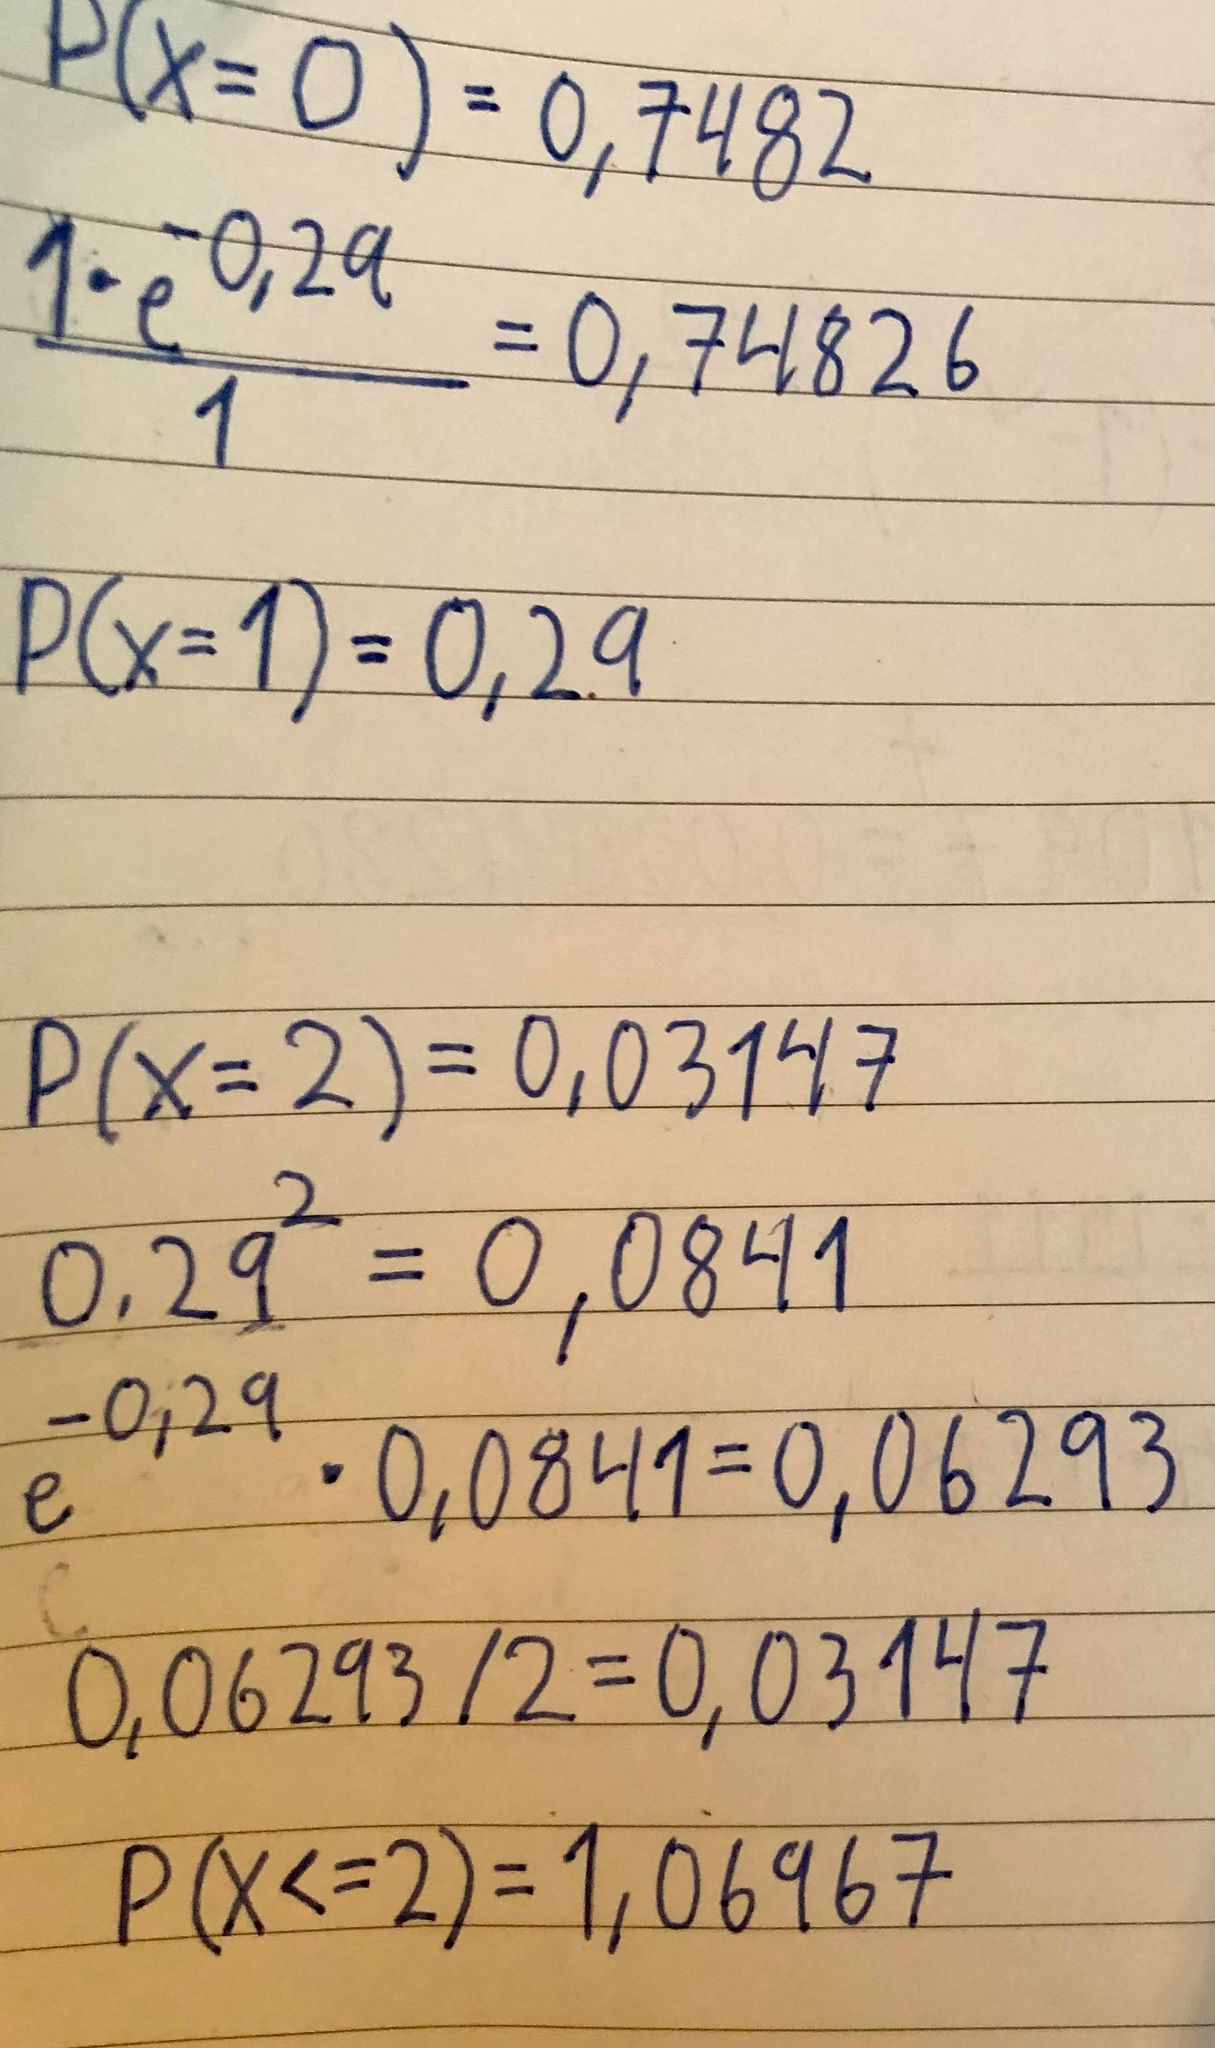 P(x=0) = 0,7482
1·e^-0,29 / 1 = 0,74826
P(x=1) = 0,29
P(x=2) = 0,03147
0.29^2 = 0,0841
e^-0,29 · 0,0841 = 0,06293
0,06293 / 2 = 0,03147
P(x<=2) = 1,06967